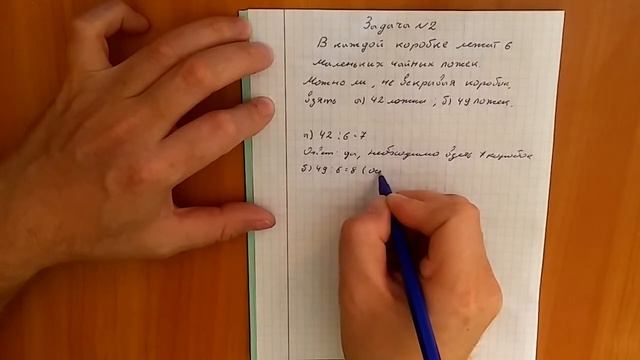 Задача №2
В каждой коробке лежит 6
маленьких чайных ложек.
Можно ли, не вскрывая коробки,
взять а) 42 ложки ; б) 49 ложек.
а) 42 : 6 = 7
Ответ: да, необходимо взять 7 коробок
б) 49 : 6 = 8 (ос